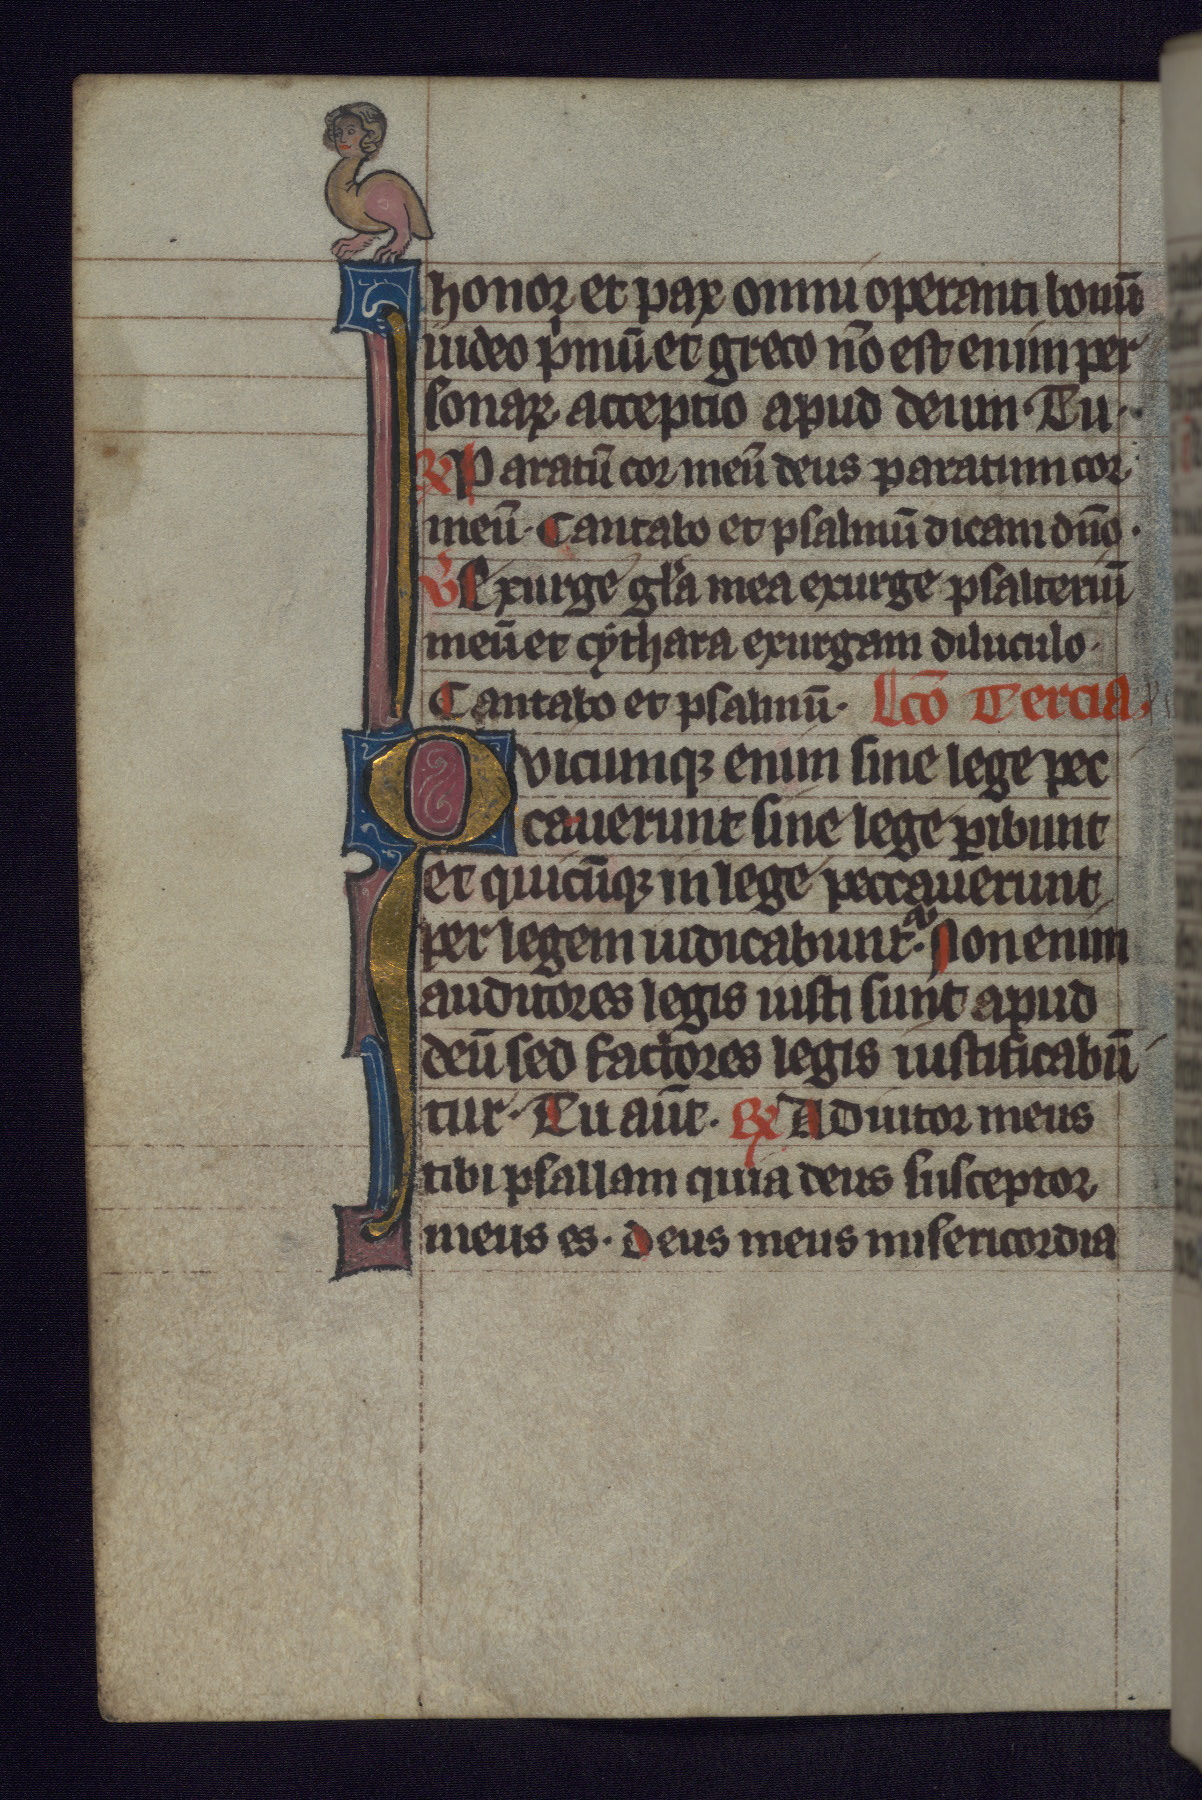 honor et pax omni operanti bonū
iudeo pͥmū et greco nō est enim per
sonaꝝ acceptio apud deum · Tu ·
℟ Paratū cor meū deus paratum cor
meū · Cantabo et psalmū dicam dn̄o ·
℣ Exurge gl̄a mea exurge psalteriū
meū et cythara exurgam diluculo ·
Cantabo et psalmū · Lc̄o Tercia ·
Quicumqꝫ enim sine lege pec
cauerunt sine lege ꝑibunt
et quicūqꝫ in lege peccauerunt
per legem iudicabunt᷑ · Non enim
auditores legis iusti sunt apud
deū sed factores legis iustificabū
tur · Tu aūt · ℟ Adiutor meus
tibi psallam quia deus susceptor
meus es · Deus meus misericordia